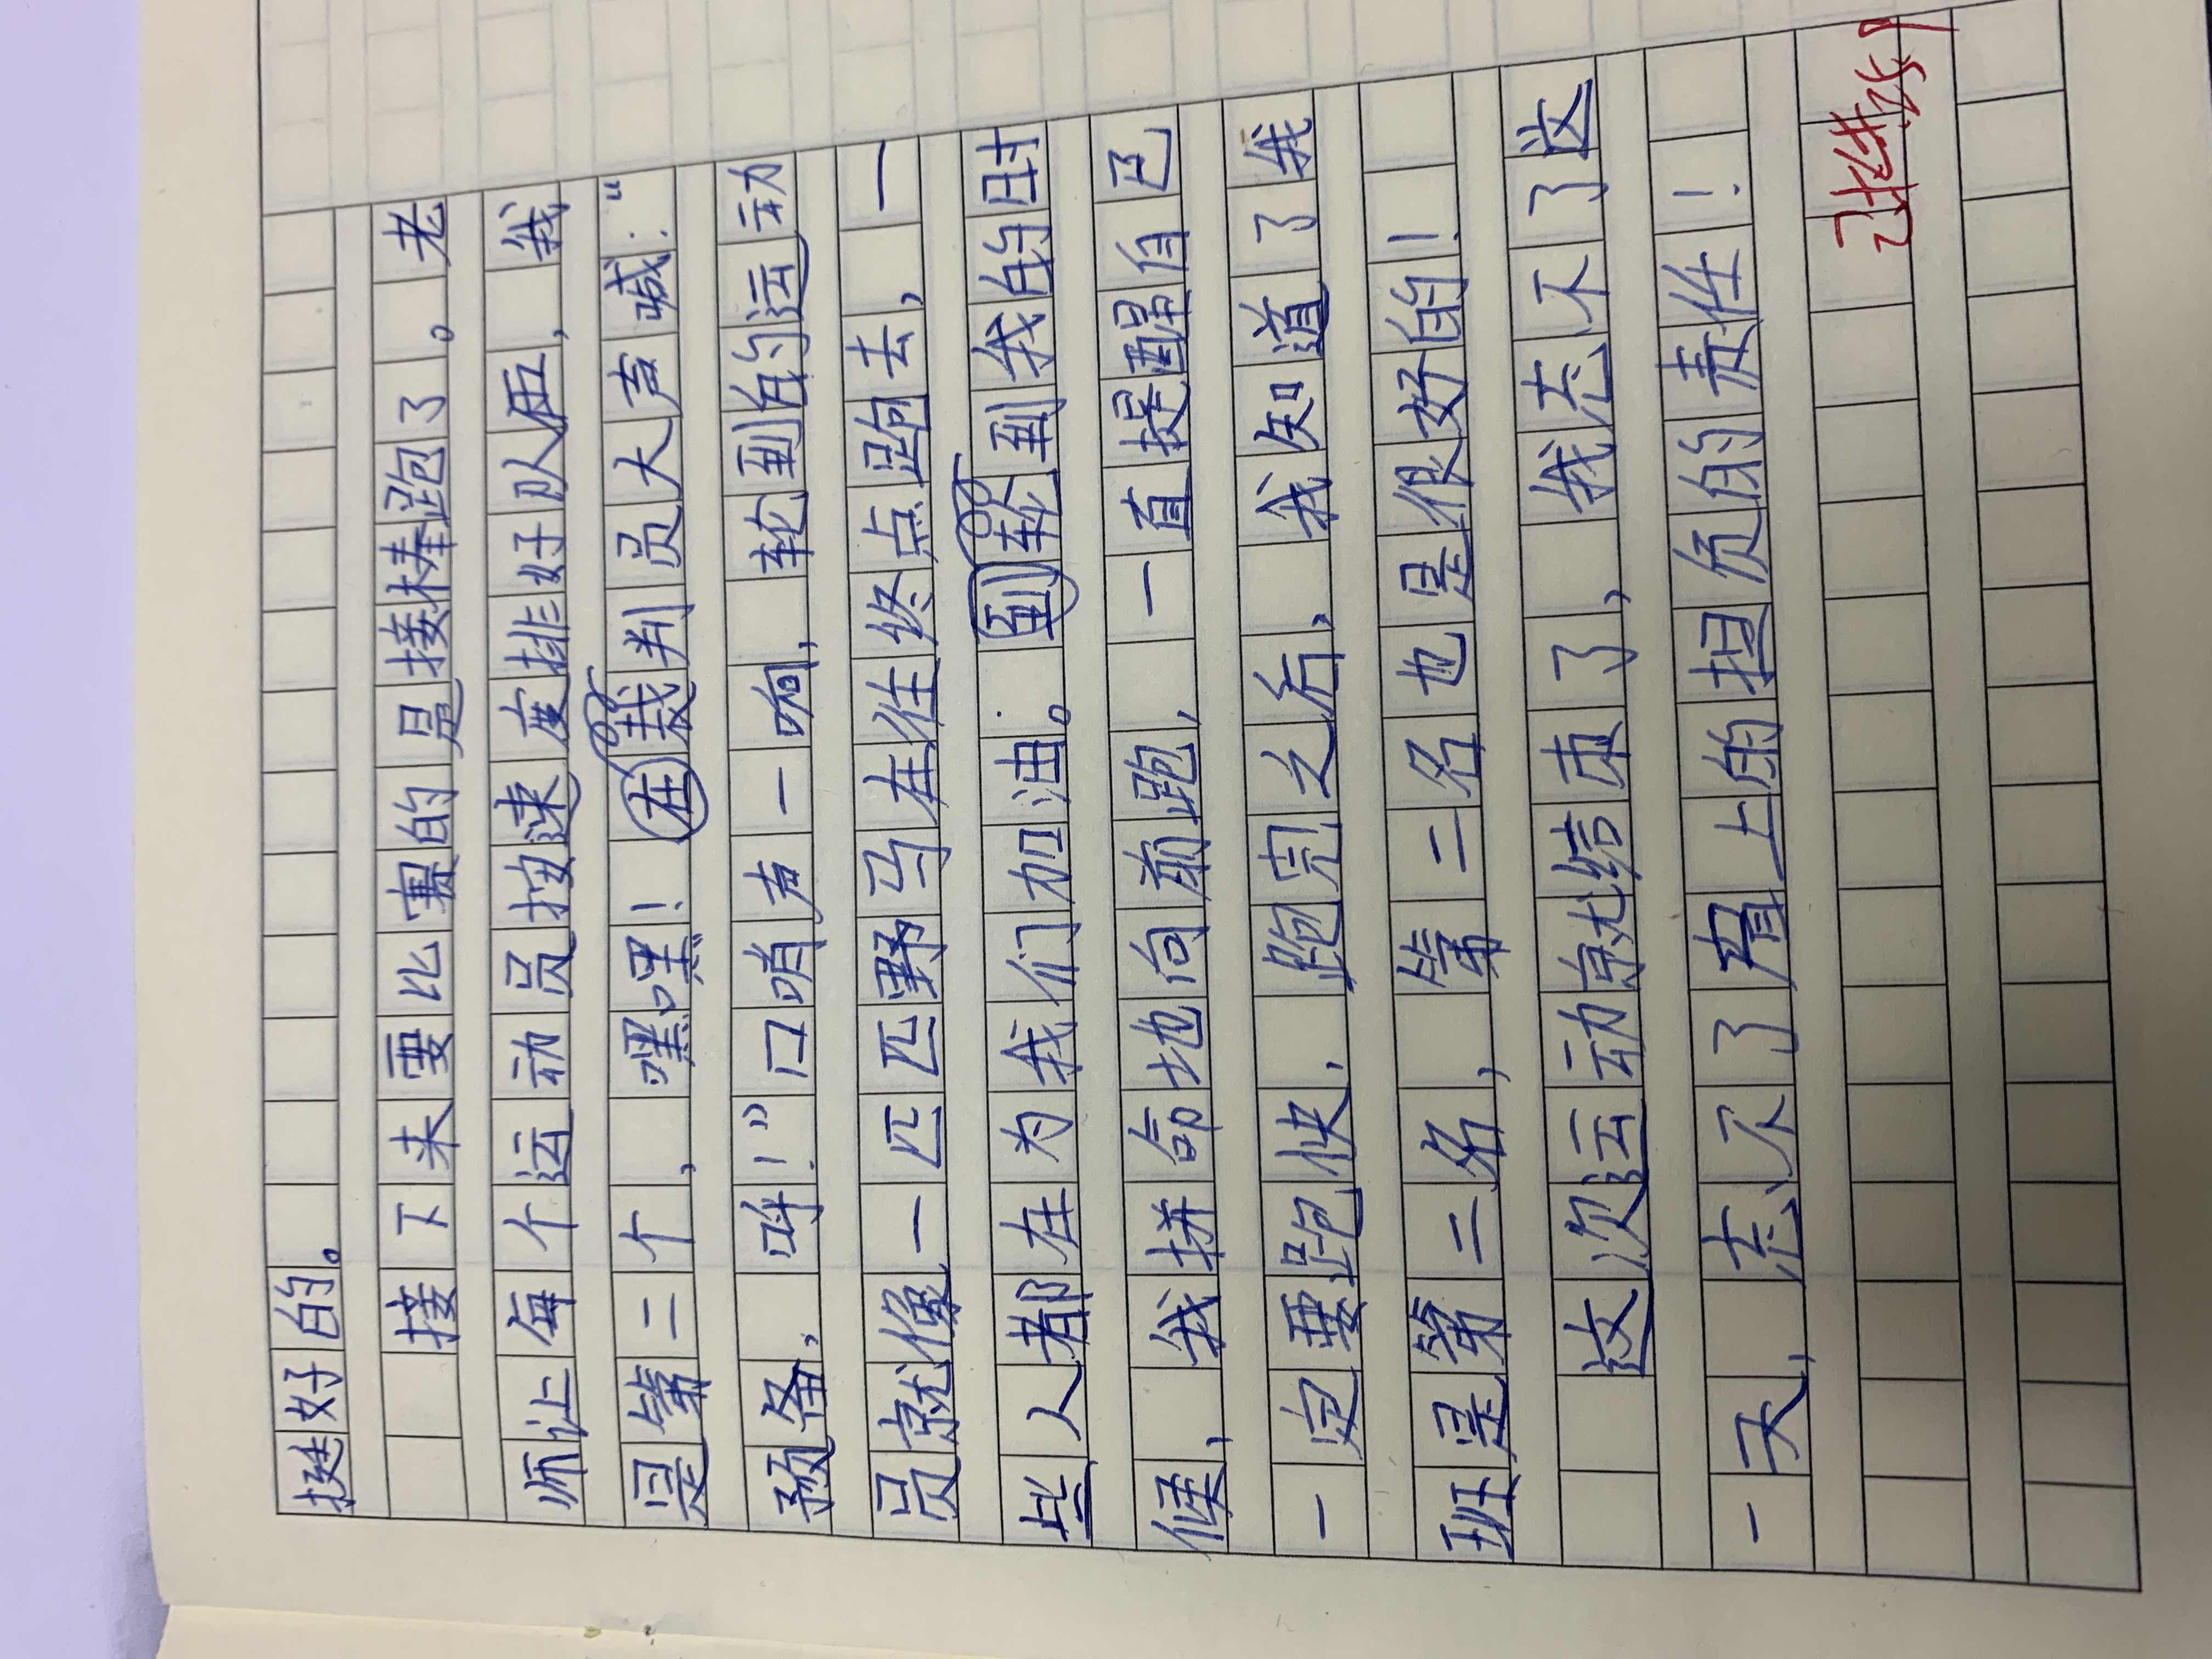 挺好的。
接下来要比赛的是接棒跑了。老
师让每个运动员按速度排好队伍，我
是第二个，嘿嘿！在裁判员大声喊：“
预备，呼！”口哨声一响，轮到的运动
员就像一匹匹野马在往终点跑去，一
些人都在为我们加油。到轮到我的时
候，我拼命地向前跑，一直提醒自己
一定要跑快，跑完之后，我知道了我
班是第二名，第二名也是很好的！
这次运动就结束了，我忘不了这
一天，忘不了肩上的担负的责任！